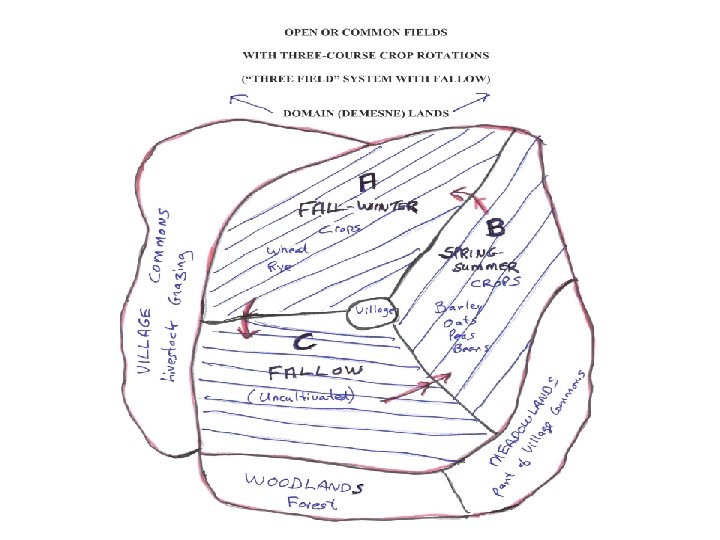 OPEN OR COMMON FIELDS
WITH THREE-COURSE CROP ROTATIONS
("THREE FIELD" SYSTEM WITH FALLOW)
DOMAIN (DEMESNE) LANDS
A
FALL-WINTER
Crops
Wheat
Rye
B
SPRING-
SUMMER
CROPS
Barley
Oats
Peas
Beans
Village
C
FALLOW
(Uncultivated)
VILLAGE COMMONS
Livestock Grazing
WOODLANDS
Forest
MEADOWLANDS
Part of Village Commons